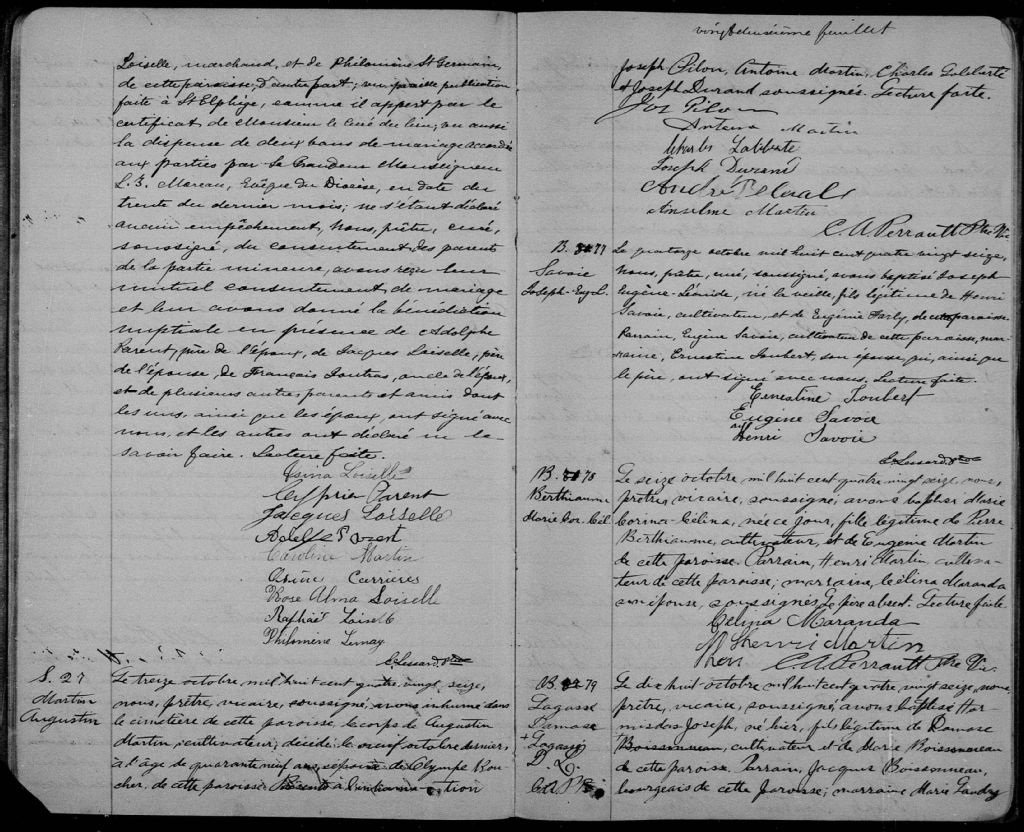 Loiselle, marchand, et de Philomène St Germain,
de cette paroisse, d'autre part; vu pareille publication
faite à St Elphège, comme il appert par le
certificat de Monsieur le Curé du lieu, vu aussi
la dispense de deux bans de mariage accordée
aux parties par Sa Grandeur Monseigneur
L. Z. Moreau, Evêque du Diocèse, en date du
trente du dernier mois; ne s'étant déclaré
aucun empêchement, Nous, prêtre, curé,
soussigné, du consentement des parents
de la partie mineure, avons reçu leur
mutuel consentement de mariage
et leur avons donné la bénédiction
nuptiale en présence de Adolphe
Parent, père de l'époux, de Jacques Loiselle, père
de l'épouse, de François Joutras, oncle de l'époux,
et de plusieurs autres parents et amis dont
les uns, ainsi que les époux, ont signé avec
nous, et les autres ont déclaré ne le
savoir faire. Lecture faite.
Loiselle
Parent
Jacques Loiselle
Caroline Martin
Carrières
Rose Alma Loiselle
Raphaël Loiselle
Philomène Lemay
Lessard
S. 27
Martin
Augustin
Le treize octobre mil huit cent quatre vingt seize,
nous, prêtre, vicaire, soussigné, avons inhumé dans
le cimetière de cette paroisse le corps de Augustin
Martin, cultivateur, décédé le neuf octobre dernier,
à l'âge de quarante neuf ans, époux de Olympe Rou-
cher, de cette paroisse. Présents à l'inhumation
vingt deuxième feuillet
Joseph Pilon, Antoine Martin, Charles Laliberté
et Joseph Durand soussignés. Lecture faite.
Jos Pilon
Martin
Charles Laliberte
Joseph Durand
André
Anselme Martin
C. A. Perrault Ptre Vic.
B. 77
Savoie
Joseph-Eug. L.
Le quatorze octobre mil huit cent quatre vingt seize,
nous, prêtre, curé, soussigné, avons baptisé Joseph
Eugène-Léonide, né la veille, fils légitime de Henri
Savoie, cultivateur, et de Eugénie Forly, de cette paroisse.
Parrain, Eugène Savoie, cultivateur de cette paroisse, mar-
raine, Ernestine Joubert, son épouse, qui, ainsi que
le père, ont signé avec nous. Lecture faite.
Ernestine Joubert
Eugène Savoie
Henri Savoie
Lessard
B. 78
Berthiaume
Marie Cor. Cél.
Le seize octobre, mil huit cent quatre vingt seize, nous,
prêtre, vicaire, soussigné, avons baptisé Marie
Corina-Célina, née ce jour, fille légitime de Pierre
Berthiaume, cultivateur, et de Eugénie Martin
de cette paroisse. Parrain, Henri Martin cultiva-
teur de cette paroisse; marraine, Célina Maranda
son épouse, soussignés. Le père absent. Lecture faite
Célina Maranda
Henri Martin
C. A. Perrault Ptre Vic.
B. 79
Lagassé
Damase
Lagassé
D. L.
Le dix huit octobre mil huit cent quatre vingt seize, nous,
prêtre, vicaire, soussigné, avons baptisé Her-
midas Joseph, né hier, fils légitime de Damase
Boissonneau, cultivateur et de Marie Boissonneau
de cette paroisse. Parrain, Jacques Boissonneau,
bourgeois de cette paroisse; marraine Marie Landry